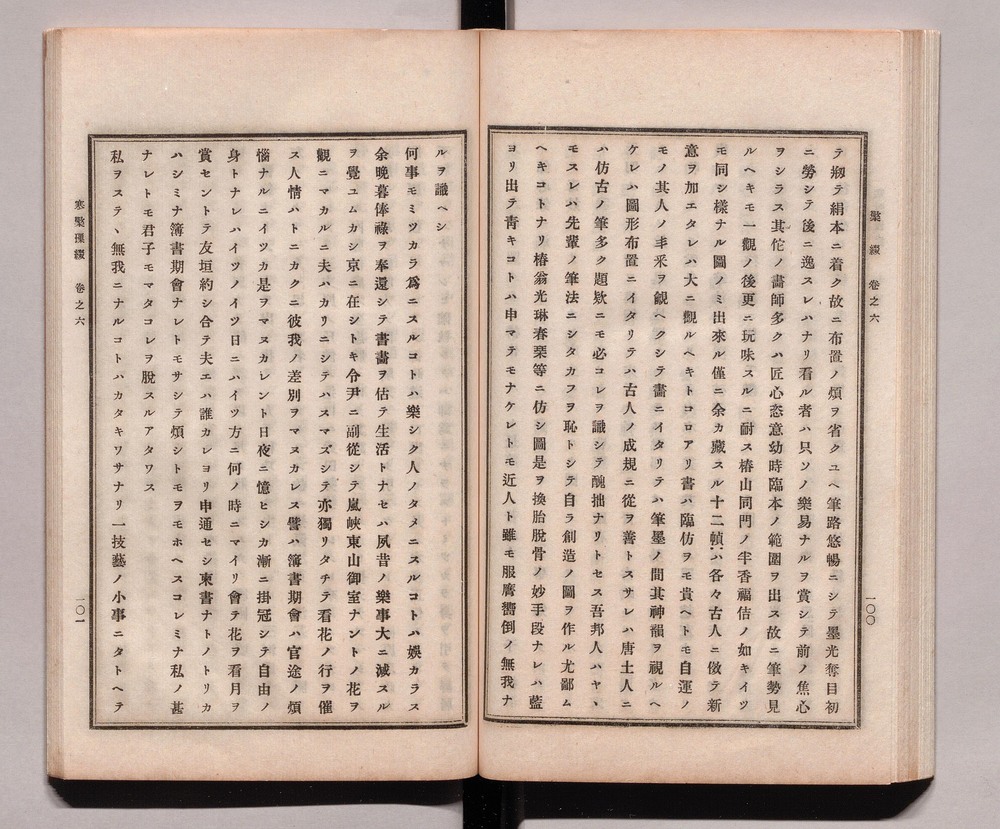 檠綴 卷之六
一〇〇
テ剏テ絹本ニ着ク故ニ布置ノ煩ヲ省クユヘ筆路悠暢ニシテ墨光奪目初
ニ勞シテ後ニ逸スレハナリ看ル者ハ只ソノ樂易ナルヲ賞シテ前ノ焦心
ヲシラス其佗ノ畵師多クハ匠心恣意幼時臨本ノ範圍ヲ出ス故ニ筆勢見
ルヘキモ一觀ノ後更ニ玩味スルニ耐ス椿山同門ノ半香福佶ノ如キイツ
モ同シ樣ナル圖ノミ出來ル僅ニ余カ藏スル十二幀ハ各々古人ニ倣テ新
意ヲ加エタレハ大ニ觀ルヘキトコロアリ書ハ臨仿ヲモ貴ヘトモ自運ノ
モノ其人ノ丰采ヲ覩ヘクシテ畵ニイタリテハ筆墨ノ間其神韻ヲ視ルヘ
ケレハ圖形布置ニイタリテハ古人ノ成規ニ從ヲ善トスサレハ唐土人ニ
ハ仿古ノ筆多ク題欵ニモ必コレヲ識シテ醜拙ナリトセス吾邦人ハヤヽ
モスレハ先輩ノ筆法ニシタカフヲ恥トシテ自ラ創造ノ圖ヲ作ル尤鄙ム
ヘキコトナリ椿翁光琳春琹等ニ仿シ圖是ヲ換胎脫骨ノ妙手段ナレハ藍
ヨリ出テ靑キコトハ申マテモナケレトモ近人ト雖モ服膺嚮倒ノ無我ナ
ルヲ識ヘシ
何事モミツカラ爲ニスルコトハ樂シク人ノタメニスルコトハ娛カラス
余晩暮俸祿ヲ奉還シテ書畵ヲ估テ生活トナセハ夙昔ノ樂事大ニ減スル
ヲ覺ユムカシ京ニ在シトキ令尹ニ副從シテ嵐峽東山御室ナントノ花ヲ
觀ニマカルニ夫ハカリニシテハスマズシテ亦獨リタチテ看花ノ行ヲ催
ス人情ハトニカクニ彼我ノ差別ヲマヌカレス譬ハ簿書期會ハ官途ノ煩
惱ナルニイツカ是ヲマヌカレント日夜ニ憶ヒシカ漸ニ掛冠シテ自由ノ
身トナレハイツノイツ日ニハイツ方ニ何ノ時ニマイリ會テ花ヲ看月ヲ
賞セントテ友垣約シ合テ夫エハ誰カレヨリ申通セシ柬書ナトノトリカ
ハシミナ簿書期會ナレトモサシテ煩シトモヲモホヘスコレミナ私ノ甚
ナレトモ君子モマタコレヲ脫スルアタワス
私ヲステヽ無我ニナルコトハカタキワサナリ一技藝ノ小事ニタトヘテ
寒檠璅綴 卷之六
一〇一